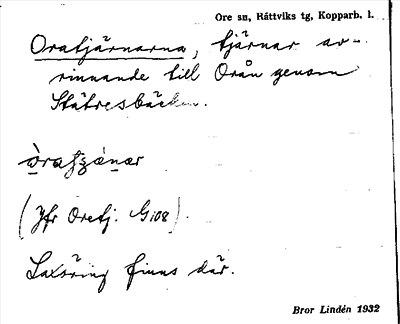 Ore sn, Rättviks tg, Kopparb. l.
Oratjärnarna, tjärnar av-
rinnande till Oraån genom
Stätresbäcken.
(Jfr Oretj. G:108).
Laxöring finns där.
Bror Lindén 1932